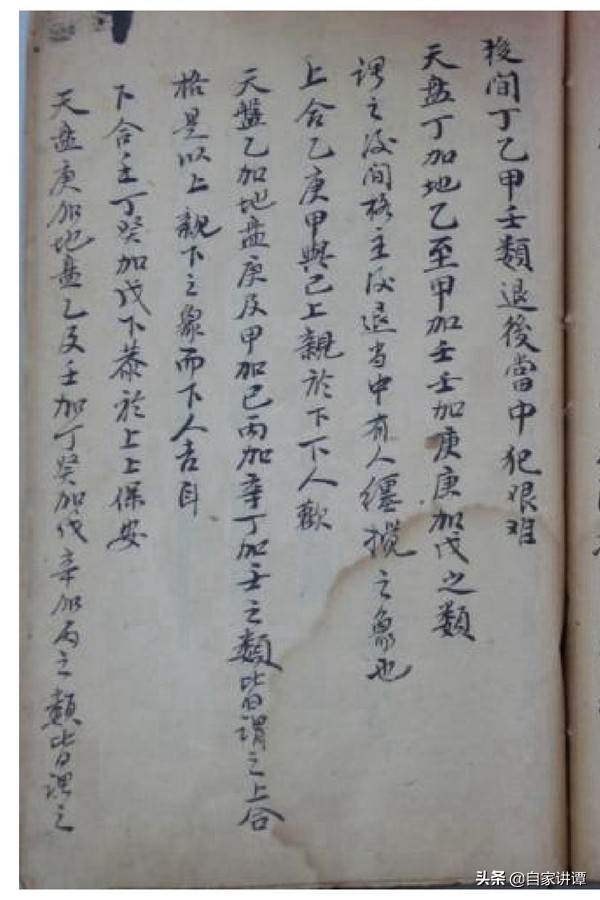 後間丁乙甲壬類退後當中犯艰难
天盘丁加地乙至甲加壬壬加庚庚加戊之類
謂之後间格主後退当中有人纒搅之象也
上合乙庚甲與己上親於下下人歡
天盤乙加地盘庚及甲加己丙加辛丁加壬之類皆謂之上合
格是以上親下之象而下人吉自
下合壬丁癸加戊下恭於上上保安
天盘庚加地盘乙及壬加丁癸加戊辛加丙之類皆谓之
头条 @自家讲谭